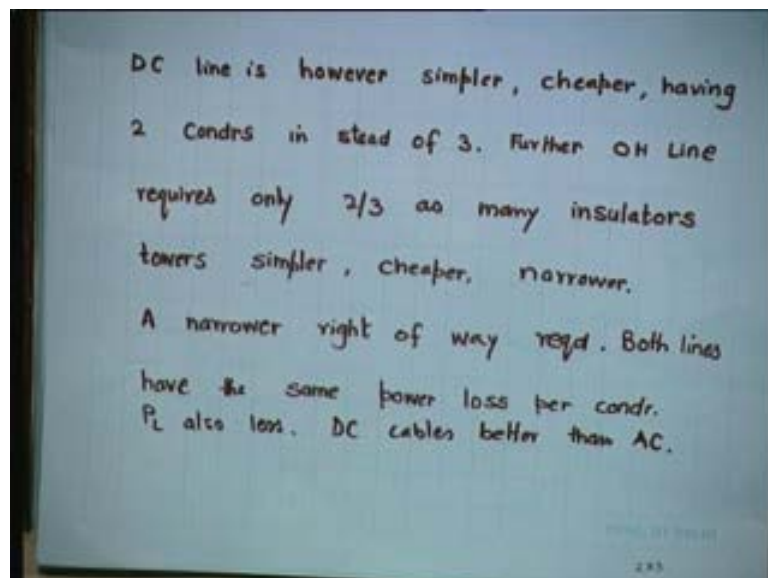 DC line is however simpler, cheaper, having
2 Condrs in stead of 3. Further OH Line
requires only 2/3 as many insulators
towers simpler, cheaper, narrower.
A narrower right of way reqd. Both lines
have the same power loss per condr.
PL also less. DC cables better than AC.